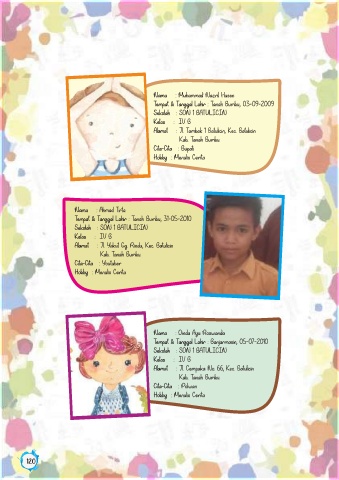 Nama : Muhammad Nazril Hasan
Tempat & Tanggal Lahir : Tanah Bumbu, 03-09-2009
Sekolah : SDN 1 BATULICIN
Kelas : IV B
Alamat : Jl. Tambak 1 Batulicin, Kec. Batulicin
Kab. Tanah Bumbu
Cita-Cita : Bupati
Hobby : Menulis Cerita
Nama : Ahmad Tirta
Tempat & Tanggal Lahir : Tanah Bumbu, 31-05-2010
Sekolah : SDN 1 BATULICIN
Kelas : IV B
Alamat : Jl. Yakut Gg. Kec. Batulicin
Kab. Tanah Bumbu
Cita-Cita : Youtuber
Hobby : Menulis Cerita
Nama : Ayu
Tempat & Tanggal Lahir : Banjarmasin, 05-07-2010
Sekolah : SDN 1 BATULICIN
Kelas : IV B
Alamat : Jl. Cempaka No. 66, Kec. Batulicin
Kab. Tanah Bumbu
Cita-Cita : Polwan
Hobby : Menulis Cerita
120